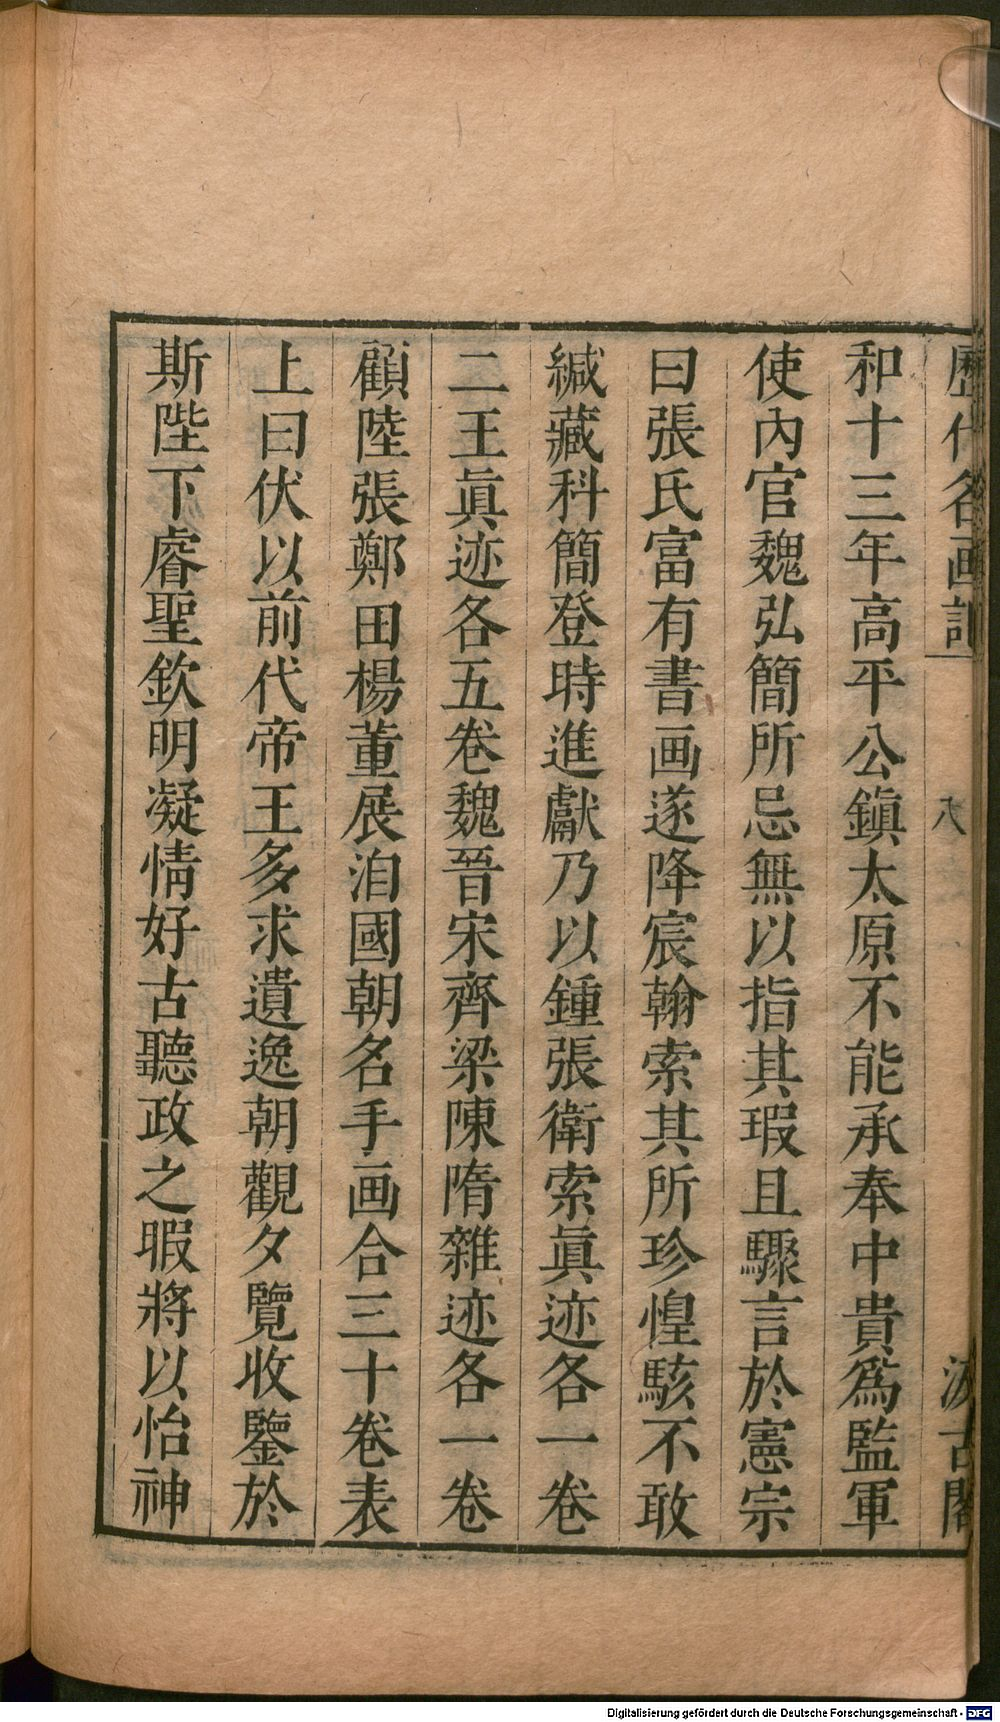 歷代名画記
汲古閣
和十三年高平公鎮太原不能承奉中貴爲監軍
使內官魏弘簡所忌無以指其瑕且驟言於憲宗
曰張氏富有書画遂降宸翰索其所珍惶駭不敢
緘藏科簡登時進獻乃以鍾張衛索眞迹各一卷
二王眞迹各五卷魏晉宋齊梁陳隋雜迹各一卷
顧陸張鄭田楊董展洎國朝名手画合三十卷表
上曰伏以前代帝王多求遺逸朝觀夕覽收鑒於
斯陛下睿聖欽明凝情好古聽政之暇將以怡神
Digitalisierung gefördert durch die Deutsche Forschungsgemeinschaft - DFG